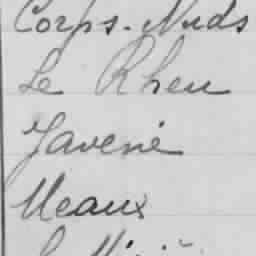 Corps-Nuds
Le Rheu
Javené
Meaux